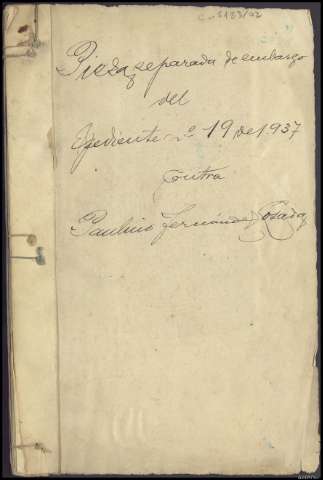 C-5133/42
Pieza separada de embargo
del
Expediente nº 19 de 1937
Contra
Paulino Fernández Posada